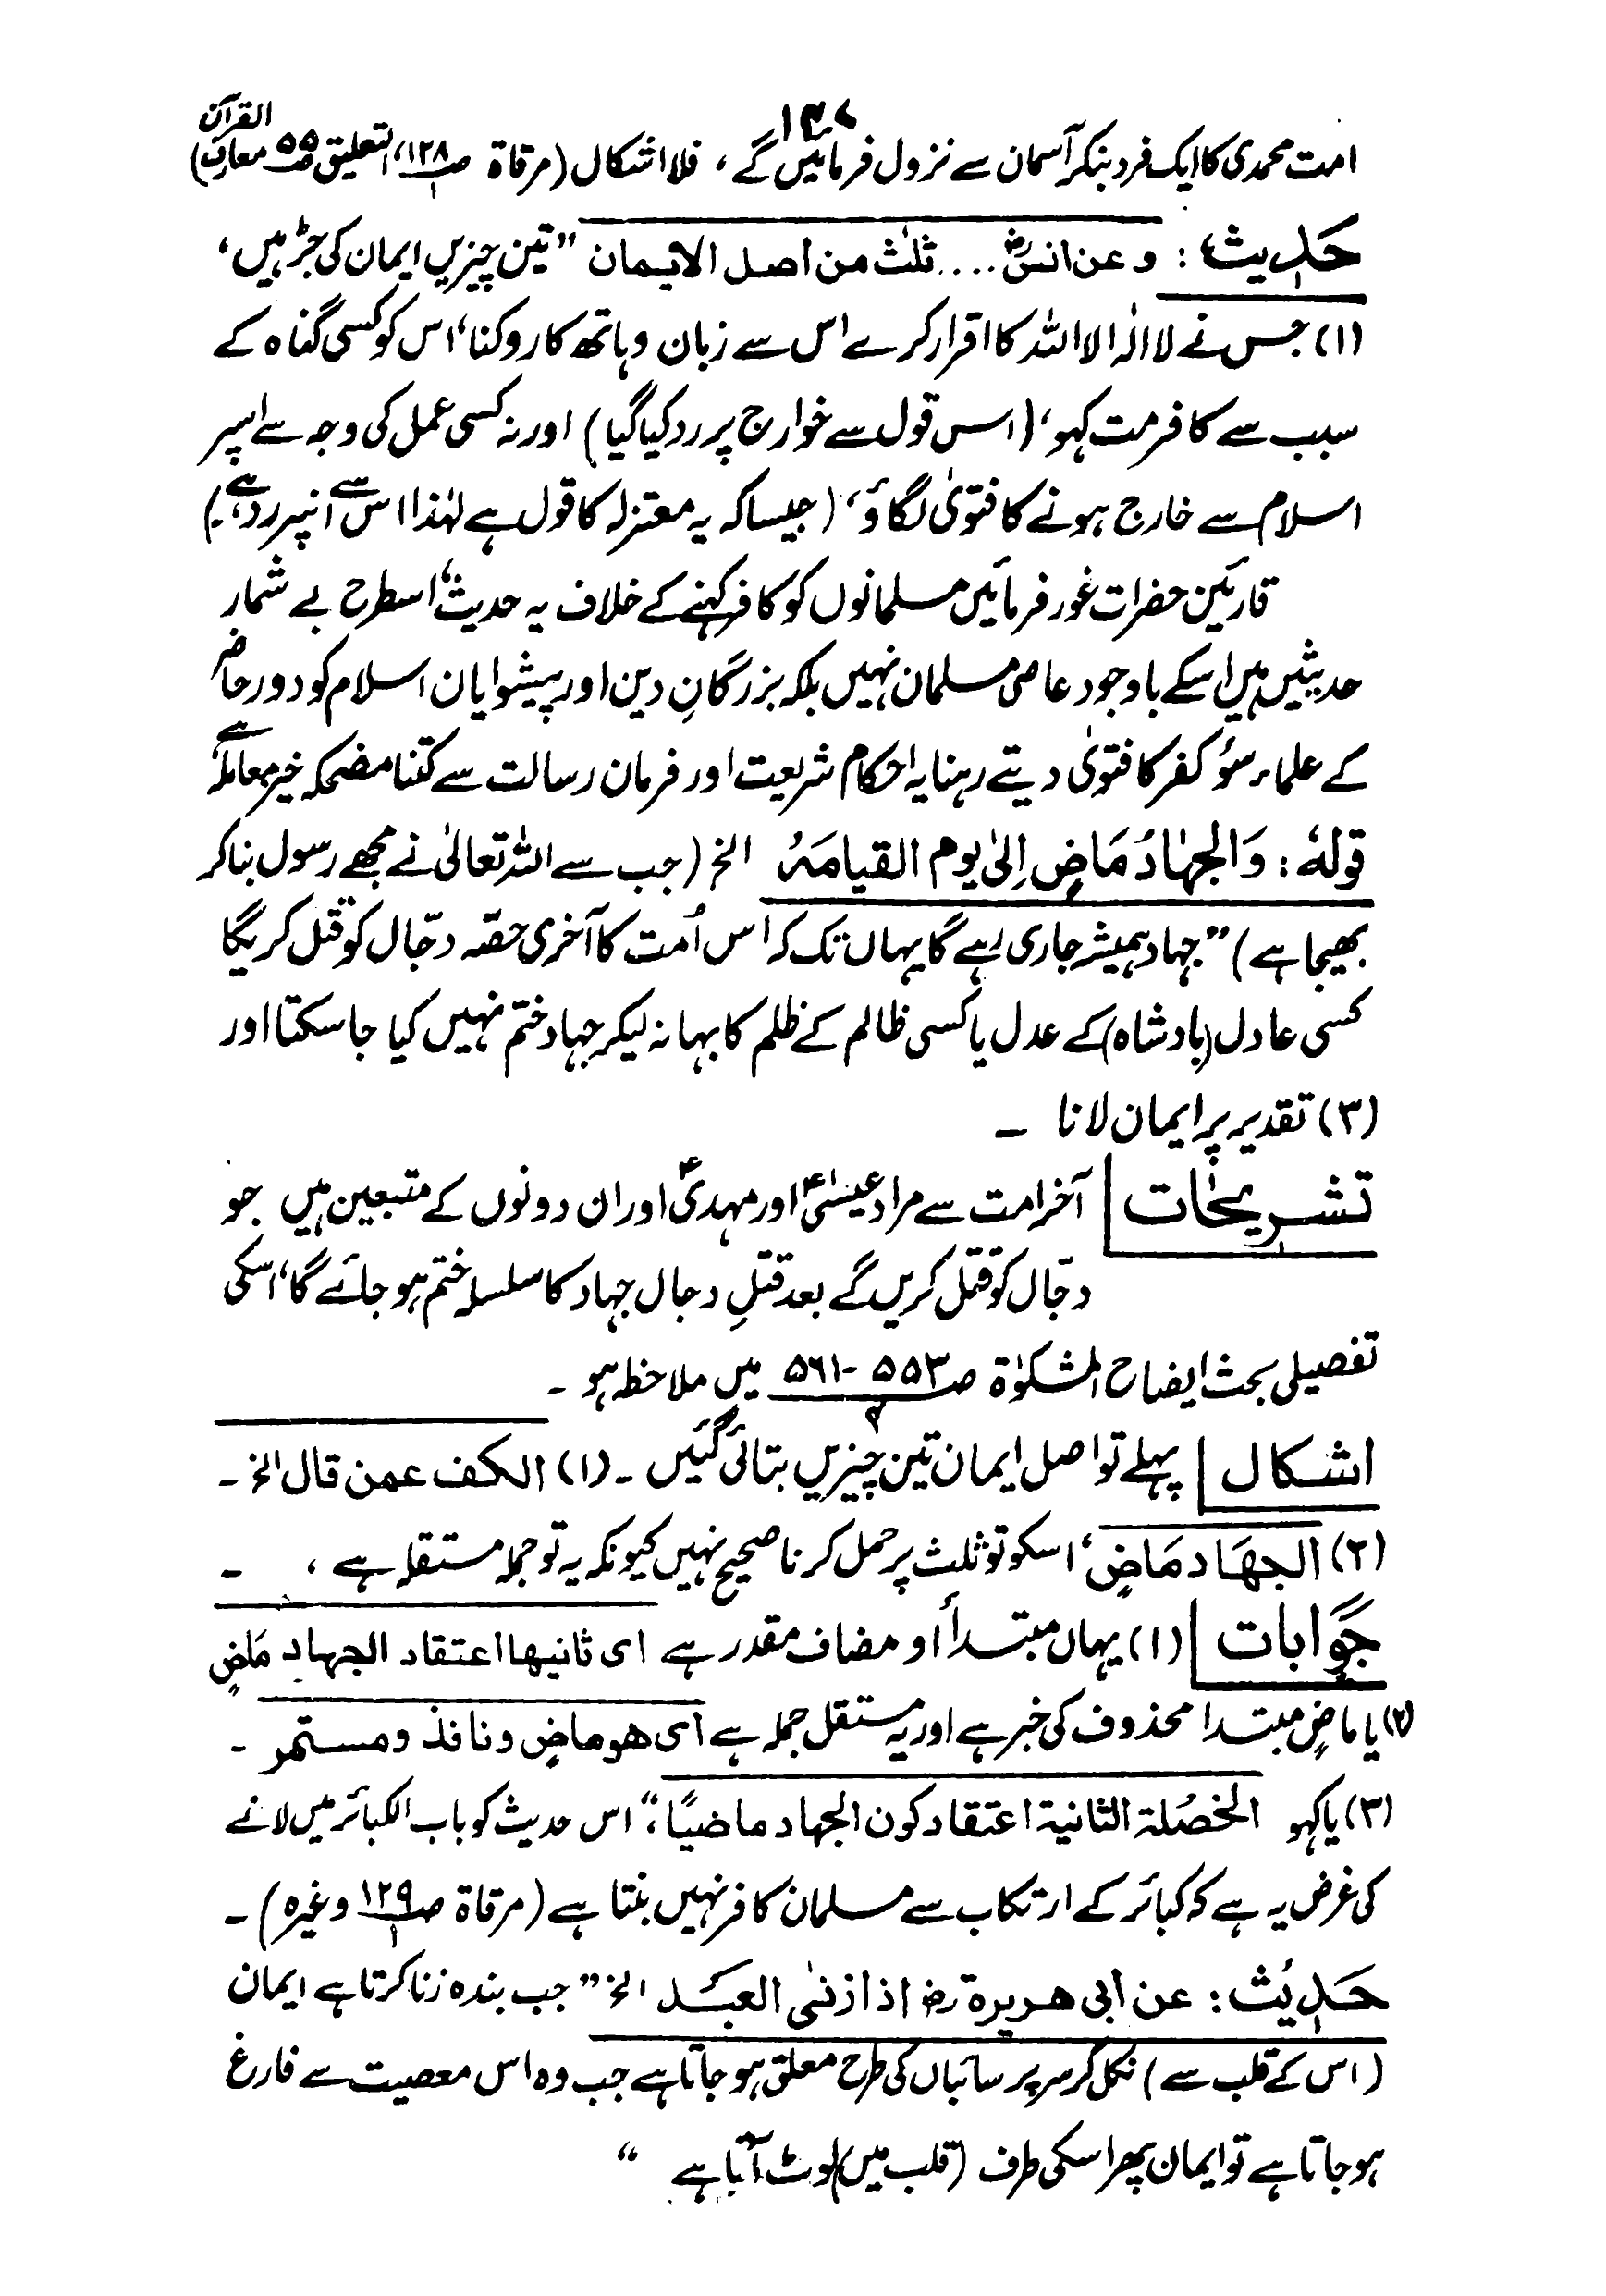 امت محمدی کا ایک فرد بنکر آسمان سے نزول فرمائیں گے، فلا اشکال (مرقاۃ ص۱۲۸/۱، التعلیق ص۵۵ معارف القرآن)
حدیث: وعن انسؓ .... ثلٰث من اصل الایمان "تین چیزیں ایمان کی جڑ ہیں،
(۱) جس نے لا الٰہ الا اللہ کا اقرار کرے اس سے زبان و ہاتھ کا روکنا، اس کو کسی گناہ کے
سبب سے کافر مت کہو، (اس قول سے خوارج پر رد کیا گیا) اور نہ کسی عمل کی وجہ سے اسپر
اسلام سے خارج ہونے کا فتویٰ لگاؤ، (جیسا کہ یہ معتزلہ کا قول ہے لہٰذا اس سے انپر رد ہے۔)
قارئین حضرات غور فرمائیں مسلمانوں کو کافر کہنے کے خلاف یہ حدیث، اسطرح بے شمار
حدیثیں ہیں اسکے باوجود عاصی مسلمان نہیں بلکہ بزرگانِ دین اور پیشوایان اسلام کو دور حاضر
کے علماء سُوء کفر کا فتویٰ دیتے رہنا یہ احکام شریعت اور فرمان رسالت سے کتنا مضحکہ خیز معاملہ ہے
قولہٗ: وَالجہَادُ مَاضٍ اِلیٰ یوم القیامۃ الخ (جب سے اللہ تعالیٰ نے مجھے رسول بنا کر
بھیجا ہے) "جہاد ہمیشہ جاری رہے گا یہاں تک کہ اس اُمت کا آخری حصّہ دجّال کو قتل کریگا
کسی عادل (بادشاہ) کے عدل یا کسی ظالم کے ظلم کا بہانہ لیکر جہاد ختم نہیں کیا جا سکتا اور
(۳) تقدیر پر ایمان لانا ۔
تشریحات آخر امت سے مراد عیسیٰؑ اور مہدیؑ اور ان دونوں کے متبعین ہیں جو
دجّال کو قتل کریں گے بعد قتلِ دجال جہاد کا سلسلہ ختم ہو جائے گا، اسکی
تفصیلی بحث ایضاح المشکوٰۃ ص۵۵۳-۵۶۱/۴ میں ملاحظہ ہو ۔
اشکال پہلے تو اصل ایمان تین چیزیں بتائی گئیں ۔ (۱) الکف عمن قال الخ ۔
(۲) الجھَاد مَاضٍ، اسکو تو ثلث پر حمل کرنا صحیح نہیں کیونکہ یہ تو جملہ مستقلہ ہے، ۔
جَوابات (۱) یہاں مبتدأ او مضاف مقدر ہے ای ثانیھا اعتقاد الجہاد مَاضٍ
(۲) یا ماضٍ مبتدا محذوف کی خبر ہے اور یہ مستقل جملہ ہے ای ھو ماضٍ و نافذ و مستمر ۔
(۳) یا کہو الخصُلۃ الثانیۃ اعتقاد کون الجہاد ماضیًا،" اس حدیث کو باب الکبائر میں لانے
کی غرض یہ ہے کہ کبائر کے ارتکاب سے مسلمان کافر نہیں بنتا ہے (مرقاۃ ص۱۲۹/۱ وغیرہ) ۔
حَدیث: عن ابی ھریرۃ رض اذا زنیٰ العبد الخ "جب بندہ زنا کرتا ہے ایمان
(اس کے قلب سے) نکل کر سر پر سائباں کی طرح معلق ہو جاتا ہے جب وہ اس معصیت سے فارغ
ہو جاتا ہے تو ایمان پھر اسکی طرف (قلب میں) لوٹ آتا ہے "